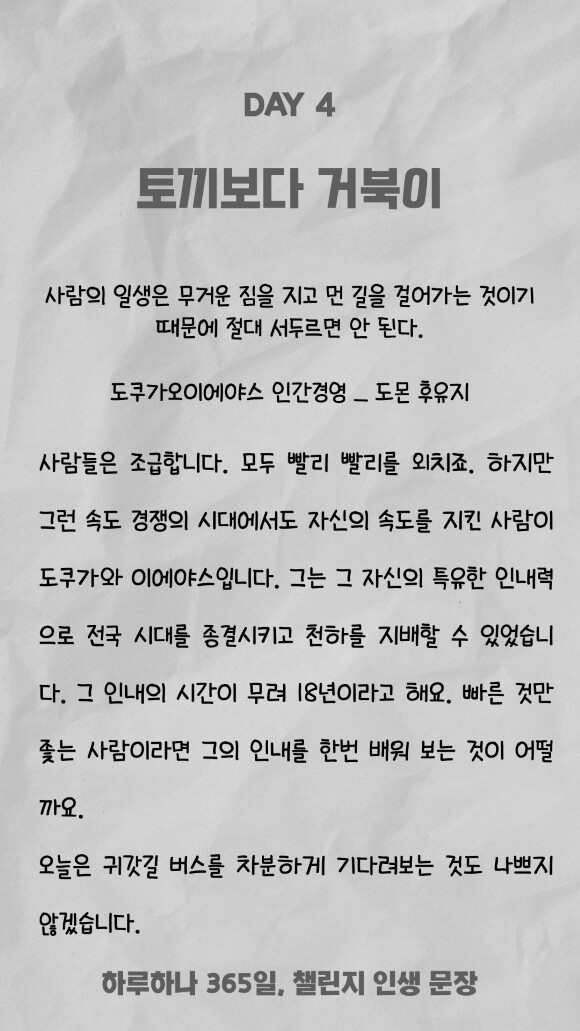 DAY 4
토끼보다 거북이
사람의 일생은 무거운 짐을 지고 먼 길을 걸어가는 것이기
때문에 절대 서두르면 안 된다.
도쿠가오이에야스 인간경영 _ 도몬 후유지
사람들은 조급합니다. 모두 빨리 빨리를 외치죠. 하지만
그런 속도 경쟁의 시대에서도 자신의 속도를 지킨 사람이
도쿠가와 이에야스입니다. 그는 그 자신의 특유한 인내력
으로 전국 시대를 종결시키고 천하를 지배할 수 있었습니
다. 그 인내의 시간이 무려 18년이라고 해요. 빠른 것만
좇는 사람이라면 그의 인내를 한번 배워 보는 것이 어떨
까요.
오늘은 귀갓길 버스를 차분하게 기다려보는 것도 나쁘지
않겠습니다.
하루하나 365일, 챌린지 인생 문장